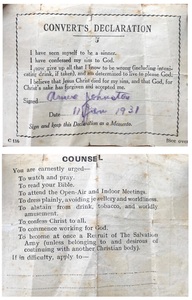 CONVERT'S DECLARATION
I have seen myself to be a sinner.
I have confessed my sins to God.
I now give up all that I know to be wrong (including intoxi-
cating drink, if taken), and am determined to live to please God.
I believe that Jesus Christ died for my sins, and that God, for
Christ's sake has forgiven and accepted me.
Signed Annie Johnston
Date 11 Jan 1931
Sign and keep this Declaration as a Memento.
COUNSEL
You are earnestly urged—
To watch and pray.
To read your Bible.
To attend the Open-Air and Indoor Meetings.
To dress plainly, avoiding jewellery and worldliness.
To abstain from drink, tobacco, and worldly
amusement.
To confess Christ to all.
To commence working for God.
To become at once a Recruit of The Salvation
Army (unless belonging to and desirous of
continuing with another Christian body).
If in difficulty, apply to—